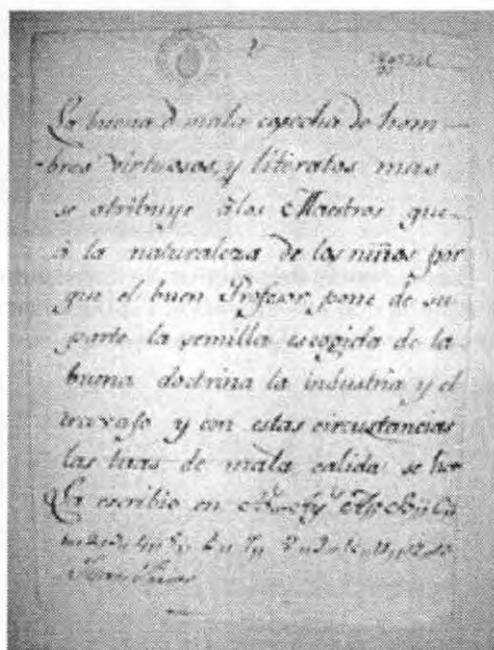 La buena ó mala cosecha de hom
bres virtuosos, y literatos mas
se atribuye álos Maestros que
á la naturaleza de los niños por
que el buen Profesor, pone de su
parte la semilla escogida de la
buena doctrina la industria y el
travajo y con estas circustancias
las de mala calida se
La escribio en